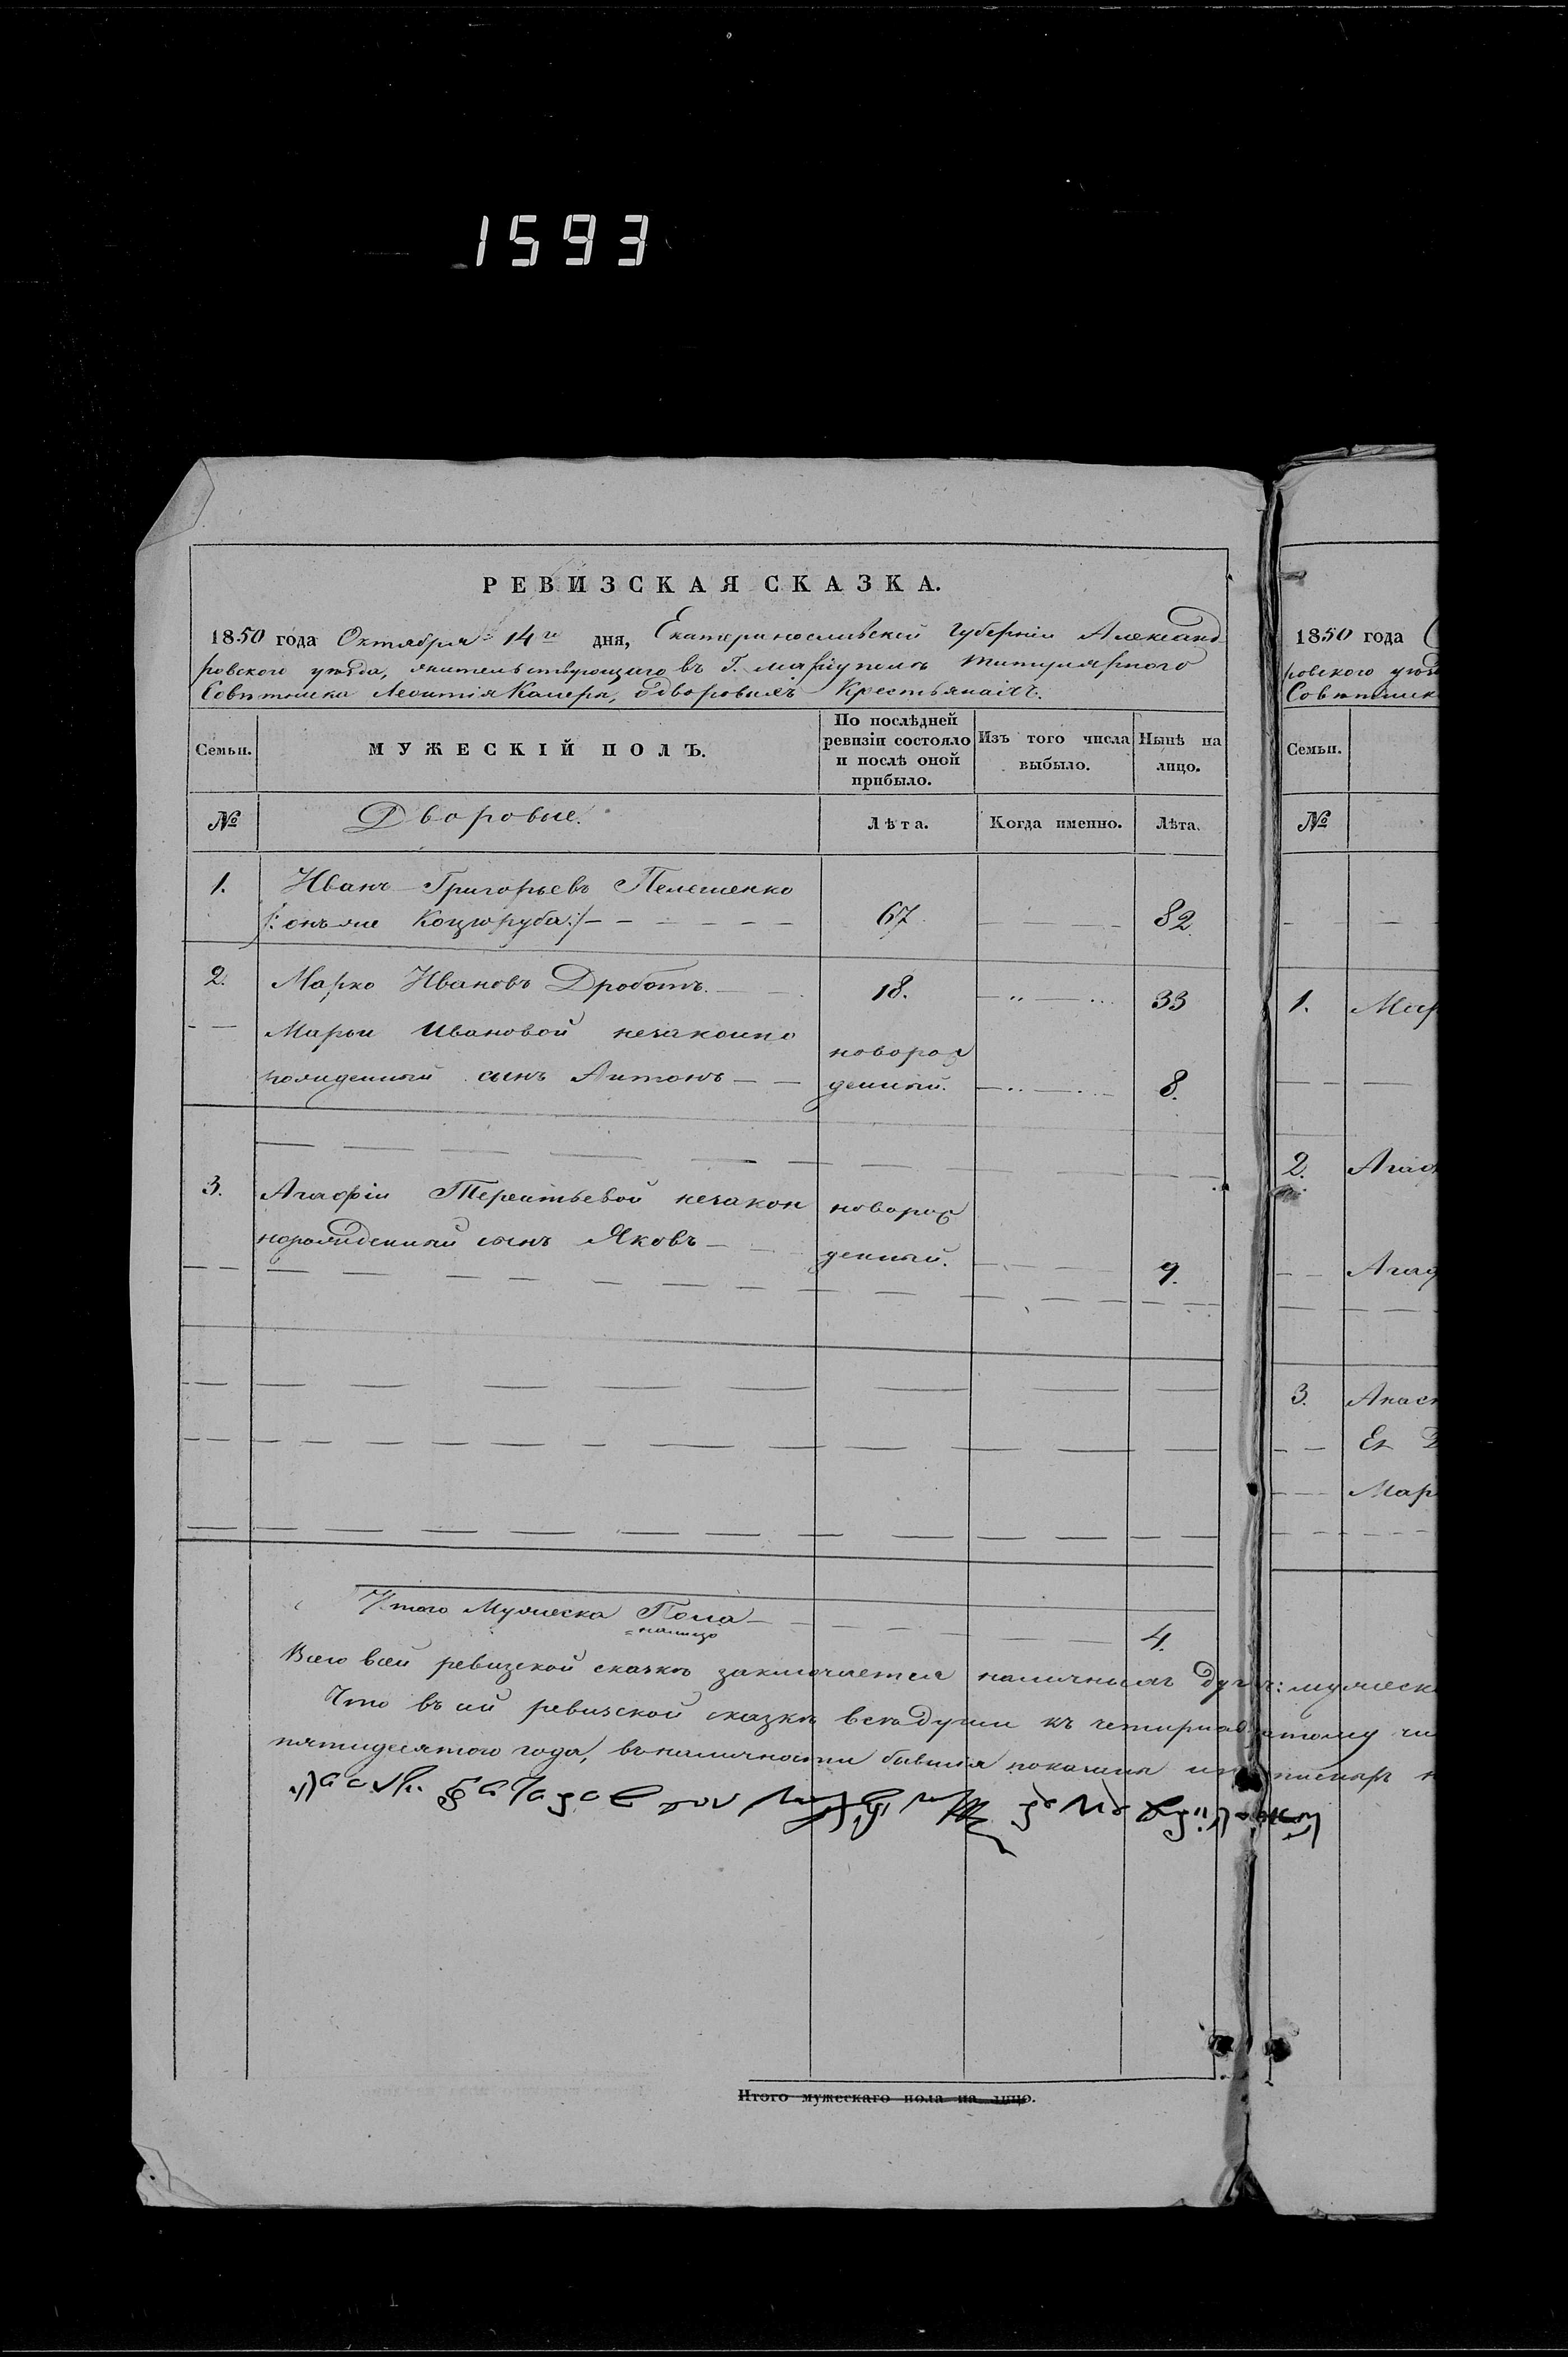 1593
РЕВИЗСКАЯ СКАЗКА.
1850 года Октября 14го дня, Екатеринославской Губерніи Александ
ровского уѣзда, жительствующаго въ Г. Маріуполѣ титулярного
Совѣтника Леонтія Калери, о дворовыхъ Крестьянахъ.
Семьи.
МУЖЕСКІЙ ПОЛЪ.
По послѣдней ревизіи состояло и послѣ оной прибыло.
Изъ того числа выбыло.
Ныне на лицо.
№
Дворовые.
Лѣта.
Когда именно.
Лѣта.
1. Иванъ Григорьевъ Пелешенко
/: онъ же Коцюруба :/ 67 82.
2. Марко Ивановъ Дроботъ. 18. 33
Марьи Ивановой незаконно новорож
рожденный сынъ Антонъ денный. 8.
3. Агафіи Терентьевой незакон новорож
норожденный сынъ Яковъ денный. 9.
Итого Мужеска Пола 4.
налицо
Всего в сей ревизской сказкѣ заключается наличныхъ душъ: мужеск
Что въ сій ревизской сказкѣ всѣ души къ четырнадцатому чи
пятидесятого года, въ наличности бывшія показаны
Итого мужескаго пола на лицо.
1850 года
ровского уѣзд
Совѣтник
Семьи.
№
1. Мар
2. Агаф
Агаф
3. Анаст
Ея
Мар